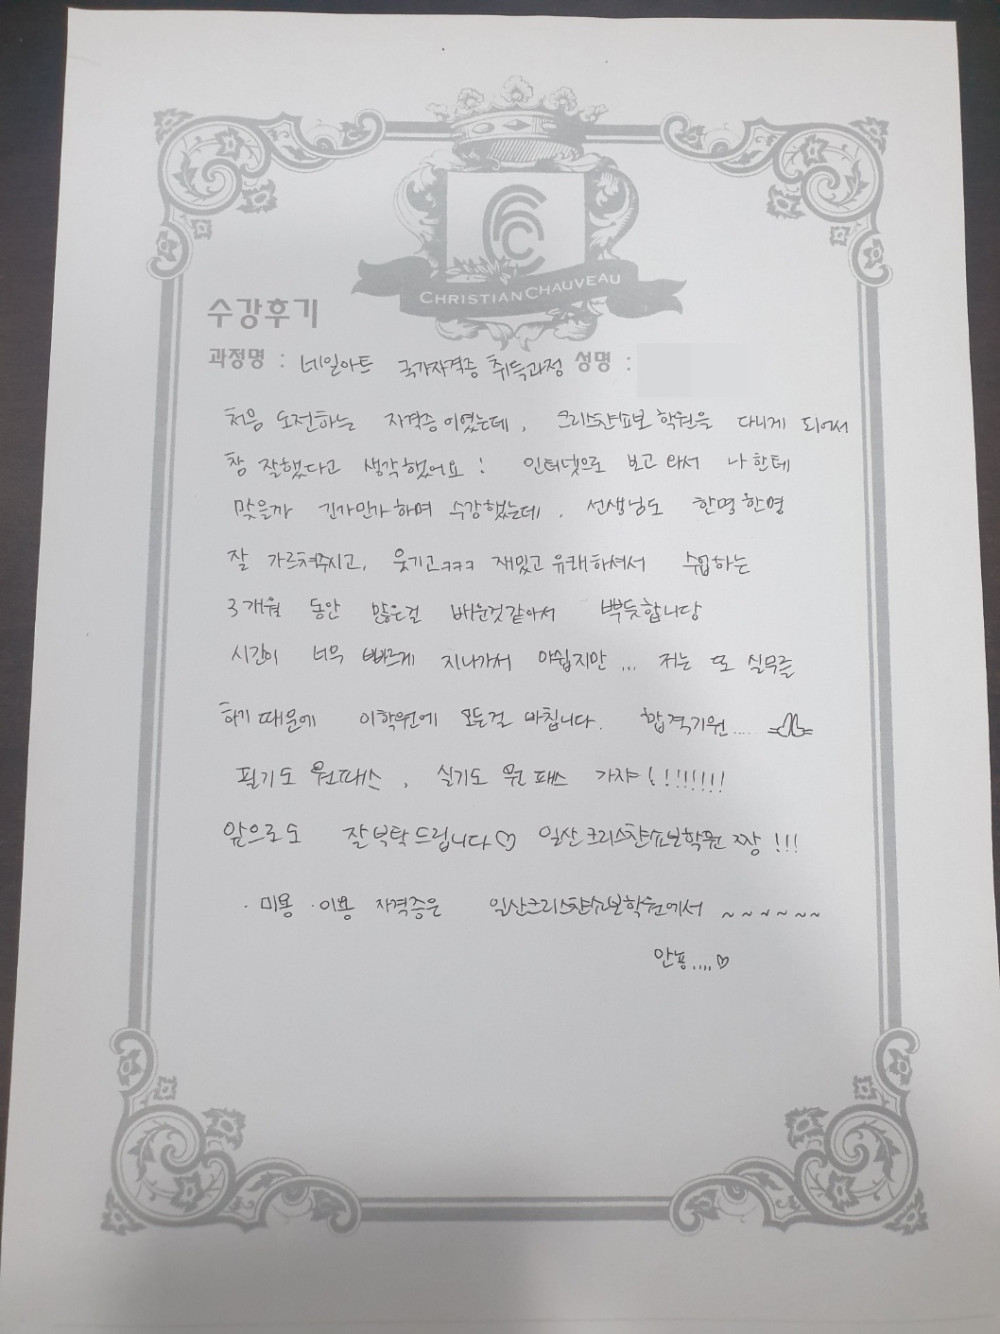 CHRISTIAN CHAUVEAU
수강후기
과정명 : 네일아트 국가자격증 취득과정 성명 :
처음 도전하는 자격증이였는데, 크리스챤쇼보 학원을 다니게 되어서
참 잘했다고 생각했어요! 인터넷으로 보고 와서 나한테
맞을까 긴가민가하며 수강했는데, 선생님도 한명한명
잘 가르쳐주시고, 웃기고ㅋㅋㅋ 재밌고 유쾌하셔서 수업하는
3개월 동안 많은걸 배운것같아서 뿌듯합니당
시간이 너무 빠르게 지나가서 아쉽지만... 저는 또 실무를
하기 때문에 이학원에 모든걸 바칩니다. 합격기원....
필기도 원패스, 실기도 원패스 가쟈!!!!!!!!
앞으로도 잘부탁드립니다♡ 일산크리스챤쇼보학원 짱!!!
· 미용 · 이용 자격증은 일산크리스챤쇼보학원에서 ~~~~~~
안뇽....♡